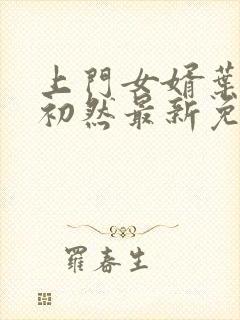 上門女婿葉
初然最新免
羅春生